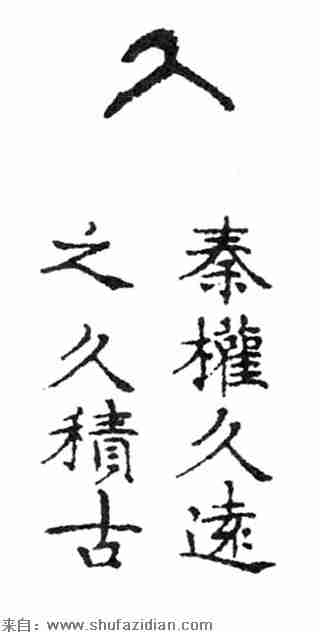 久
秦權久遠
之久積古
来自：www.shufazidian.com